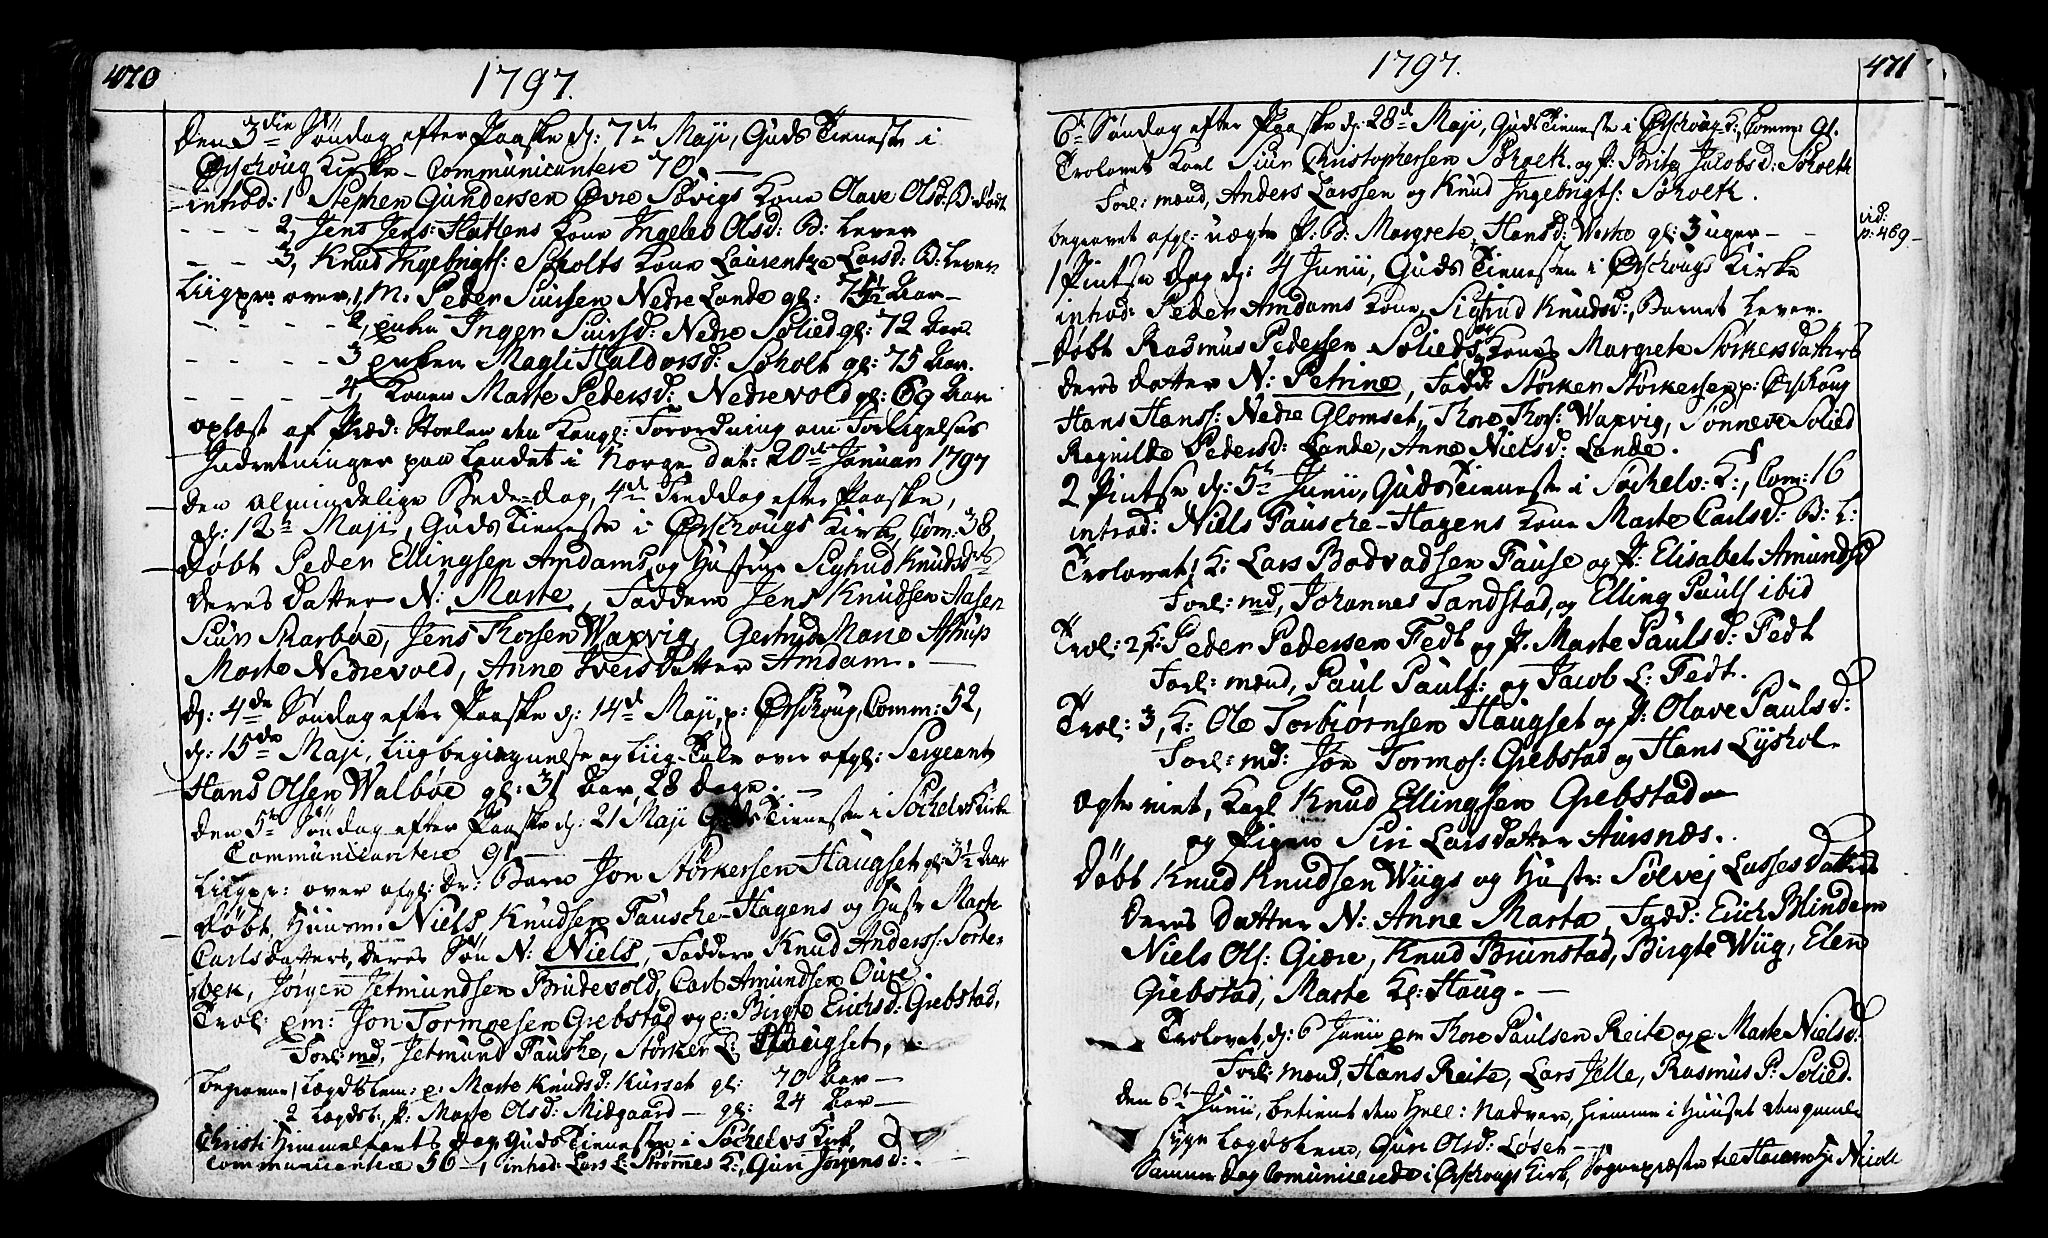 470
1797.
Den 3die Søndag efter Paaske d: 7de Maji, Guds Tieneste i
Ørschoug Kirke – Communicantere 70 –
introd: 1 Stephen Gundersen Øvre Søvigs Kone Olave Olsd: B: død
2, Jens Jens: Hatlens Kone Ingeles Olsd: B: Lever
3, Knud Ingebrigts: Søholts Kone Laurentze Larsd: B: Lever
Liigpr: over, 1, M. Peder Siursen Nedre Lande gl: 75½ Aar –
2, enken Inger Siursd: Nedre Solied gl: 72 Aar.
3 enken Magli Haldorsd: Søholt gl: 75 Aar.
4, Konen Marte Pedersd: Nedrevold gl: 69 Aar
oplæst af Præd: Stoelen den Kongl: Forordning om Forligelses
Indretninger paa Landet i Norge dat: 20de Januar 1797
Den almindelige Bede-dag, 4de Freddag efter Paaske,
d: 12te Maji, Guds Tieneste i Ørschougs Kirke, Com: 38,
Døbt Peder Ellingsen Amdams og Hustrue Sigtrud Knudsd:
deres Datter N: Marte, Faddere Jens Knudsen Aasen
Siur Skarboe, Jens Thorsen Waxvig, Gertrude Marie Astrup
Marte Nedrevold, Anne Iversdatter Amdam. –
d: 4de Søndag efter Paaske d: 14de Maji, p: Ørschoug, Comm: 52,
d: 15de Maji, Liigbegiengnelse og Liig-Tale over afgl: Sergeant
Hans Olsen Walbøe gl: 31 Aar, 28 Dage. –
Den 5te Søndag efter Paaske d: 21 Maji Guds Tieneste i Søchelvs Kirke
Communicantere 91 –
Liigpr: over afgl: Dr: Barn Jon Størkersen Haugset gl: 3½ Aar
Døbt, Huusm: Niels Knudsen Fausche-Hagens og Hustr Marte
Carlsdatters, deres Søn N: Niels, Faddere, Knud Anderss: Sorte-
bek, Jørgen Jetmundsen Brudevold, Carl Amundsen Oure
Trol: em: Jon Tormoesen Grebstad og p: Birgte Erichsd: Grebstad,
Forl: md, Jetmund Fauske, Størker L: Haugset,
begraven 1 Lægdslem: p: Marte Knudsd: Kurset gl: 70 Aar –
2 Lægdsl: P: Marte Olsd: Midgaard – gl: 24 Aar –
Christi Himmelfarts Dag Guds Tieneste i Søchelvs Kirk,
Communicantere 56 –, introd: Lars L: Strømes K:, Guri Jørgensd: –
1797.
471
6te Søndag efter Paaske d: 28de Maji, Guds Tieneste i Ørschoug K:, Comm: 91.
Trolovet Karl Siur Christophersen Søholt og P: Brite Jacobsd: Søholt
Forl: mænd, Anders Larssen og Knud Ingebrigts: Søholt.
begravet afgl: uægte P: B: Margrete Hansd: Werke gl: 3 uger –
vid:
p: 469 –
1 Pintse Dag d: 4 Junii, Guds Tienesten i Ørschougs Kirke
introd: Peder Amdams Kone Sigtrud Knudsd:, Barnet Lever.
Døbt Rasmus Pedersen Solieds og Kones Margrete Størkersdatters
deres datter N: Petrine, Fadd: Størker Størkersen p: Ørschoug
Hans Hans: Nedre Glomset, Thore Thors: Waxvig, Sønneve Solied
Ragnilde Pedersd: Lande, Anne Nielsd: Lande.
2 Pintse d: 5te Junii, Guds Tieneste i Søchelv: K:, Com: 16
introd: Niels Fausche-Hagens Kone Marte Carlsd: B: L:
Trolovet 1 K: Lars Bodvadsen Fause og P: Elisabet Amundsd
Forl: md, Johannes Tandstad, og Elling Pauls ibid
Trol: 2 K: Peder Pedersen Fedt og P. Marte Paulsd: Fedt
Forl: mænd, Paul Pauls: og Jacob L: Fedt.
Trol: 3, K: Ole Torbiørnsen Haugset og P: Olave Paulsd:
Forl: md: Jon Tormos: Grebstad og Hans Lyshol
Ægte viet, Karl Knud Ellingsen Grebstad
og Pigen Siri Larsdatter Aursnæs.
Døbt Knud Knudsen Wiigs og Hustr: Solvej Lassesdatters
deres datter N: Anne Marta, Fadd: Erich Blindem
Niels Ols: Giære, Knud Brunstad, Birgte Wiig, Elen
Grebstad, Marte Kl: Haug. –
Trolovet, d: 6 Junii em Thore Paulsen Reite og p Marte Nielsd:
Forl: mænd, Hans Reite, Lars Jelle, Rasmus P: Solied.
Den 6te Junii, betient den Hell: Nadvere, hiemme i Huuset den gamle
syge Lægdslem, Guri Olsd: Løset –
Samme Dag Comunicerede i Ørschougs Kirk, Sognepræsten